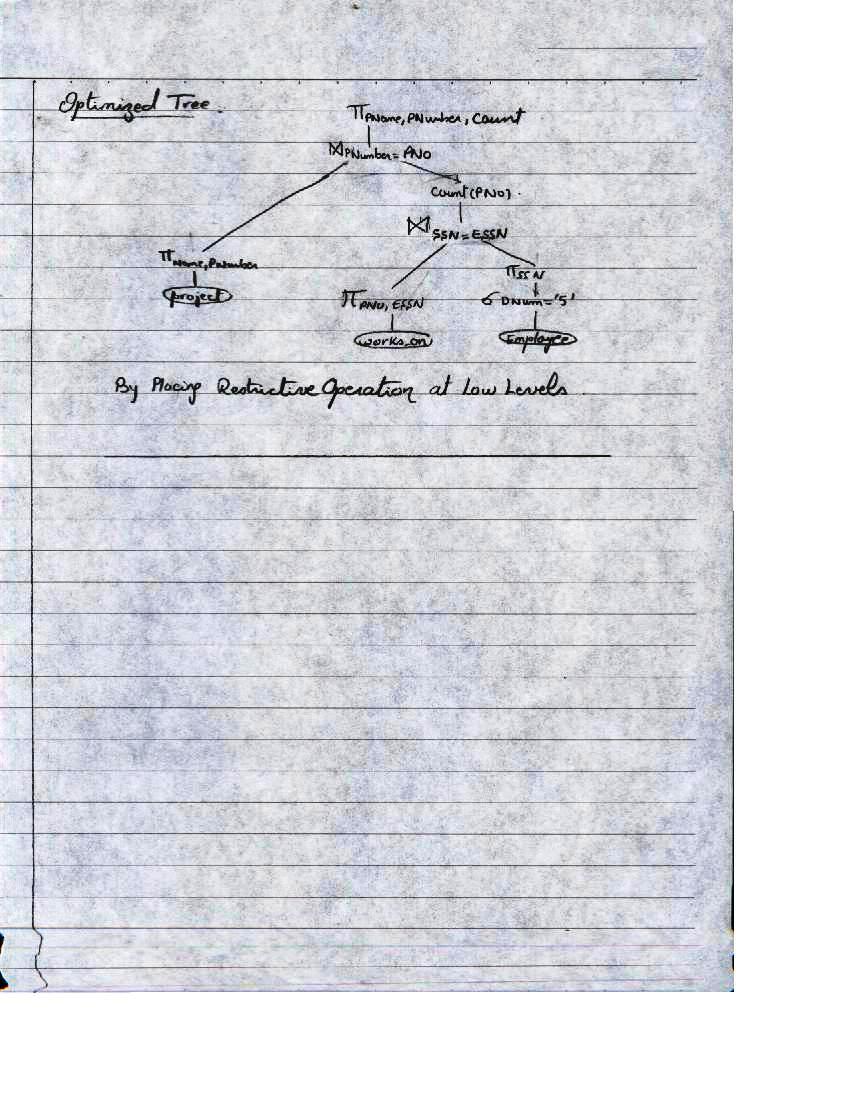 Optimized Tree.
π PName, PNumber, Count
⋈ PNumber = PNO
Count(PNO).
⋈ SSN = ESSN
π Name, PNumber
π SSN
project
π PNO, ESSN
σ DNum = '5'
works_on
Employee
By Placing Restrictive Operation at Low Levels